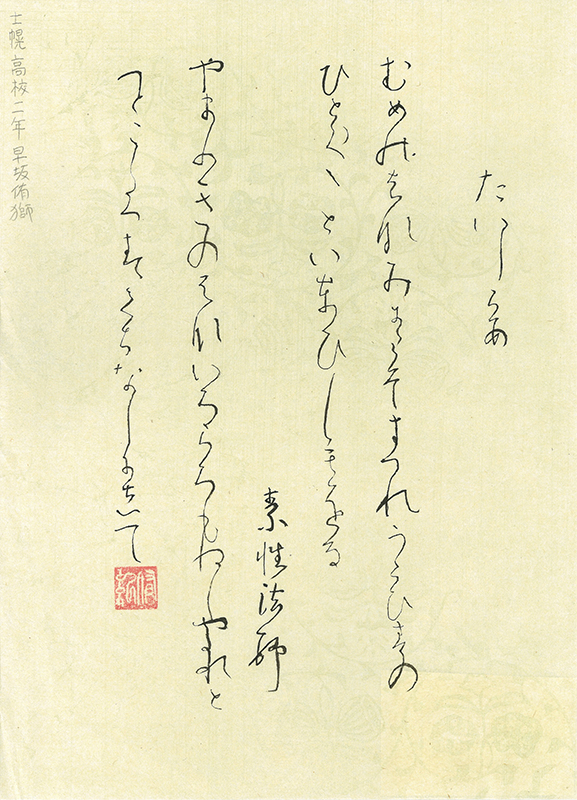 たいしらす
むめのはなみにこそきつれうくひすの
ひとく〱といとひしもをる
素性法師
やまふきのはないろころもぬしやたれと
へとこたへすくちなしにして
士幌高校二年 早坂侑獅